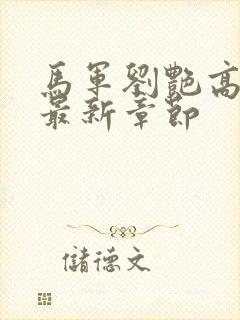 馬軍劉艷高
最新章節
儲德文